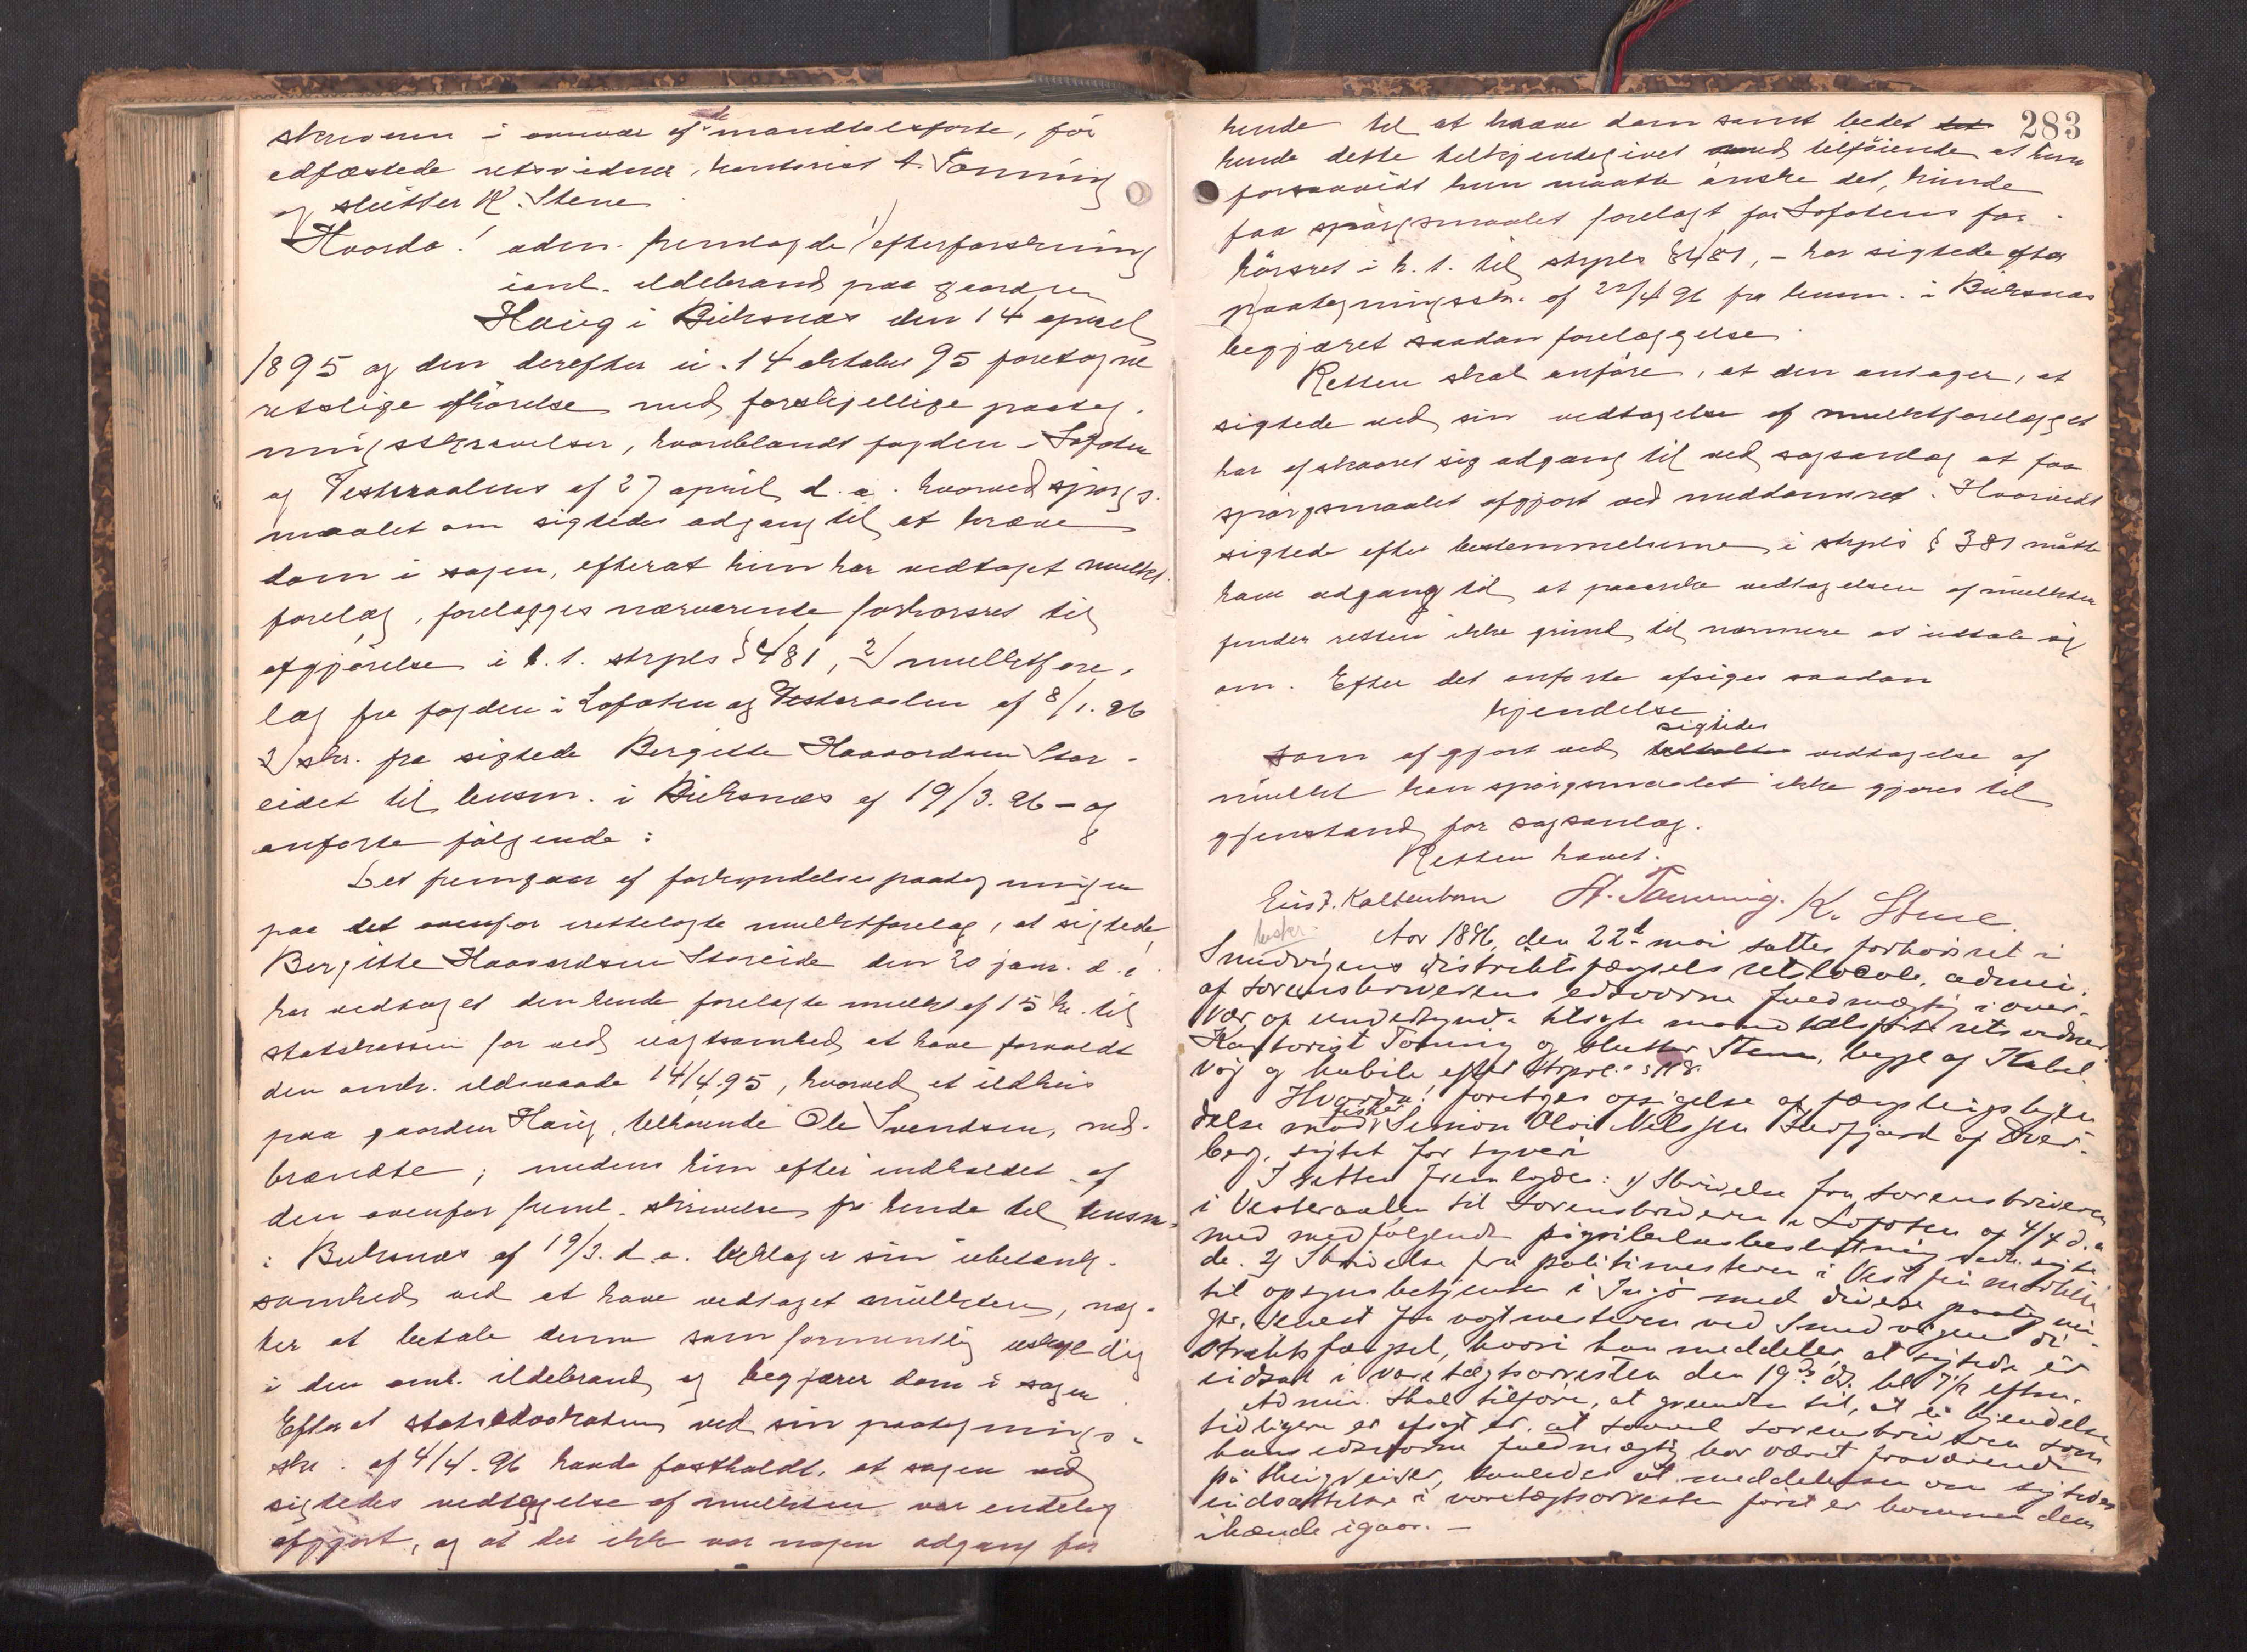 skriveren i overvær af de mandtalsførte, før
edfæstede retsvidner, kontorist A. Tønning
og slutter K. Stene.
Hvorda! adm. fremlagde 1) efterforskning
i anl. ildebrand paa gaarden
Haug i Buksnæs den 14 april
1895 og den derefter u. 14 oktober 95 foretagne
retslige afhørelse med forskjellige paateg-
ningsskrivelser, hvoriblandt fogden i Lofoten
og Vesteraalens af 27 april d. a. hvorved spørgs-
maalet om sigtedes adgang til at kræve
dom i sagen, efterat hun har vedtaget mulkt-
forelæg, forelægges nærværende forhørsret til
afgjørelse i h. t. strpls § 481, 2) mulktfore-
læg fra fogden i Lofoten og Vesteraalen af 8/1. 96
3) skr. fra sigtede Bergitte Haavardsen Stor-
eidet til lensm. i Buksnæs af 19/3. 96 – og
anførte følgende:
Det fremgaar af forkyndelsespaategningen
paa det ovenfor irettelagte mulktforelæg, at sigtede
Bergitte Haavardsen Storeide den 30 janr. d. a.
har vedtaget den hende forelagte mulkt af 15 kr. til
statskassen for ved uagtsomhed at have forvoldt
den omh. ildsvaade 14/4 95, hvorved et ildhus
paa gaarden Haug, tilhørende Ole Svendsen, ned-
brændte; medens hun efter indholdet af
den ovenfor freml. skrivelse fra hende til lensm.
i Buksnæs af 19/3. d. a. beklager sin ubetænk-
somhed ved at have vedtaget mulkten, næg-
ter at betale denne som formentlig uskyldig
i den omh. ildebrand og begjærer dom i sagen.
Efterat statsadvokaten ved sin paategnings-
skr. af 4/4. 96 havde fastholdt, at sagen ved
sigtedes vedtagelse af mulkten var endelig
afgjort, og at der ikke var nogen adgang for
283
hende til at kræve dom samt bedet
hende dette tilkjendegivet med tilføiende at hun
forsaavidt hun maatte ønske det, kunde
faa spørgsmaalet forelagt for Lofotens for-
hørsret i h. t. til strpls § 481, – har sigtede efter
paategningsskr. af 22/4 96 fra lensm. i Buksnæs
begjæret saadan forelæggelse.
Retten skal anføre, at den antager, at
sigtede ved sin vedtagelse af mulktforelægget
har afskaaret sig adgang til ved sagsanlæg at faa
spørgsmaalet afgjort ved meddomsret. Hvorvidt
sigtede efter bestemmelserne i strpls § 381 måtte
have adgang til at paaanke vedtagelsen af mulkten
finder retten ikke grund til nærmere at udtale sig
om. Efter det anførte afsiges saadan
kjendelse
sigtedes
Som afgjort ved vedtagelse af
mulkt kan spørgsmaalet ikke gjøres til
gjenstand for sagsanlæg.
Retten hævet.
Eins. F. Kaltenborn A. Tønning. K. Stene
beskr.
Aar 1896, den 22de mai sattes forhørsret i
Smedvigens distriktsfængsels retslocale, admin.
af sorenskriverens edsvorne fuldmægtig i over-
vær af undertegnede tilsagte mandtalsførte retsvidner
Kontorist Tønning og slutter Stene, begge af Kabel-
våg og habile efter Strprl.
Hvorda: foretages afsigelse af fængslingskjen-
fisker
delse mod Simion Olai Nilssen Indfjord af Dver-
berg, sigtet for tyveri
I retten fremlagdes: 1) Skrivelse fra sorenskriveren
i Vesteraalen til sorenskriveren i Lofoten af 4/4 d. a.
med medfølgende pågribelsesbeslutning vedk. sigte-
de. 2) Skrivelse fra politimesteren i Vest finmarken
til opsynsbetjenten i Ingø med diverse paategnin-
ger, senest fra vagtmesteren ved Smedvigens di-
striktsfængsel, hvori han meddeler, at sigtede er
indsat i varetægtsarresten den 19de ds. kl 7 1/2 efterm.
Admin. skal tilføre, at grunden til, at ei kjendelse
tidligere er afsagt er, at saavel sorenskriveren som
hans edsvorne fuldmægtig har været fraværende
på thingreiser, saaledes at meddelelsen om sigtedes
indsættelse i varetægtsarresten først er kommen dem
ihænde igaar. –